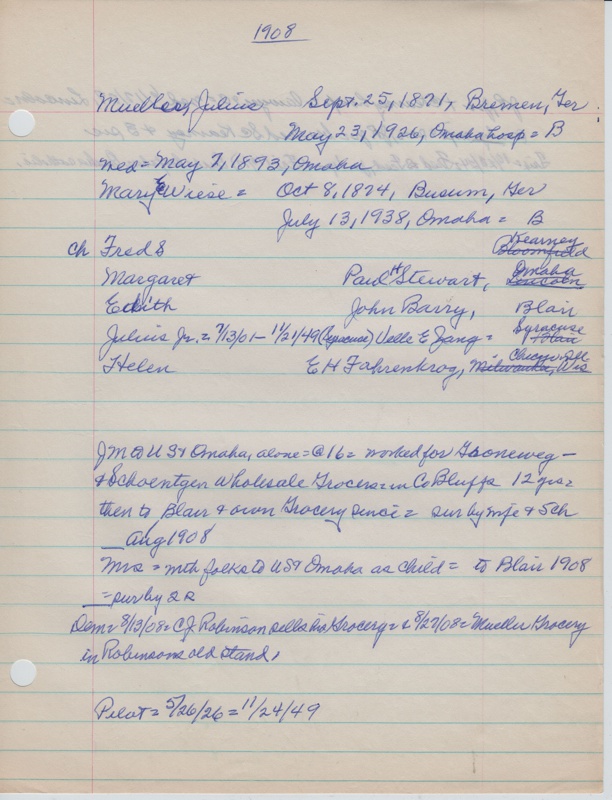 1908
Mueller, Julius Sept. 25, 1871, Bremen, Ger
May 23, 1926, Omaha hosp = B
med = May 7, 1893, Omaha
Mary E Wiese = Oct 8, 1874, Busum, Ger
July 13, 1938, Omaha = B
Kearney
ch Fred S Bloomfield
Omaha
Margaret Paul H Stewart, Lincoln
Edith John Barry, Blair
Syracuse
Julius Jr. = 7/13/01 - 11/21/49 (Syracuse) Velle E Jang = Blair
Helen E H Fahrenkrog, Milwaukee, Wis
JM to US & Omaha, alone = @ 16 = worked for Groneweg -
& Schoentgen Wholesale Grocers = in Co Bluffs 12 yrs =
then to Blair & own Grocery since = sur by wife & 5 ch
Aug 1908
Mrs = with folks to US & Omaha as child = to Blair 1908
= sur by
Dem = 8/13/08 = C.J. Robinson sells his Grocery = & 8/27/08 = Mueller Grocery
in Robinsons old stand,
Pilot = 5/26/26 = 11/24/49